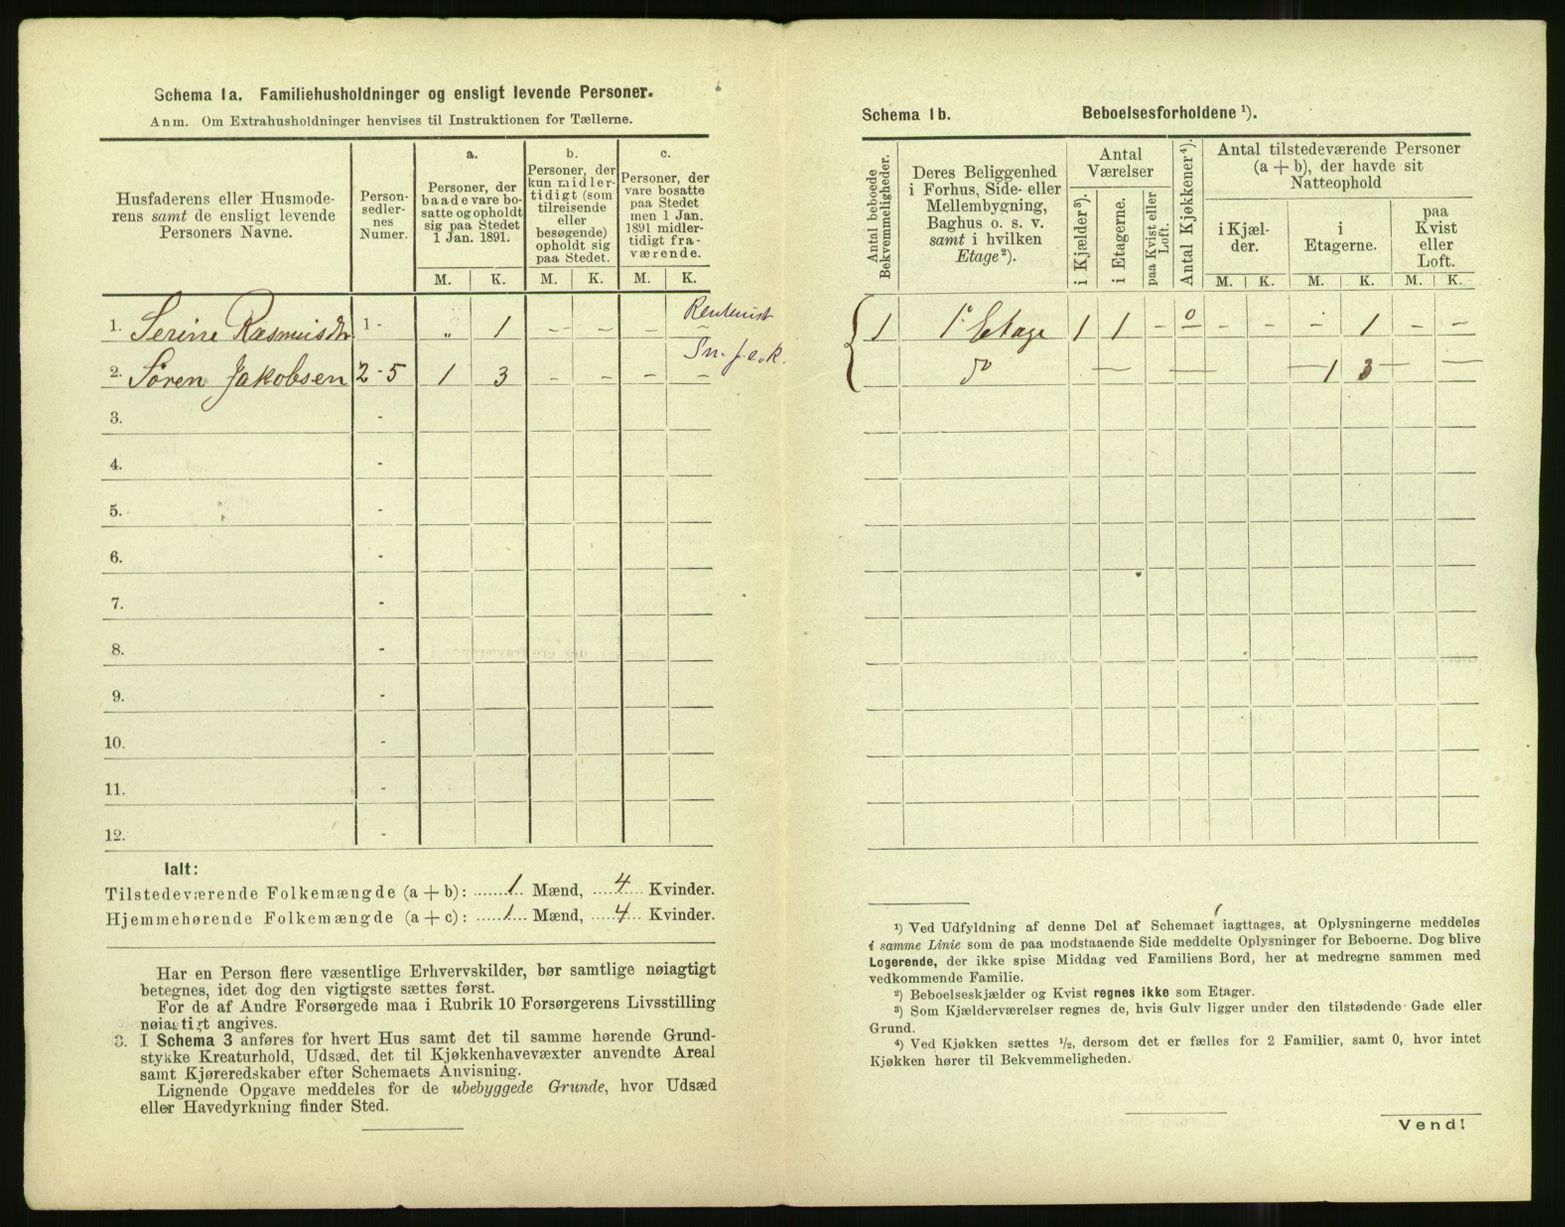 Schema 1a. Familiehusholdninger og ensligt levende Personer.
Anm. Om Extrahusholdninger henvises til Instruktionen for Tællerne.
Husfaderens eller Husmode-
rens samt de ensligt levende
Personers Navne.
Person-
sedler-
nes
Numer.
a.
Personer, der
baade vare bo-
satte og opholdt
sig paa Stedet
1 Jan. 1891.
b.
Personer, der
kun midler-
tidigt (som
tilreisende
eller
besøgende)
opholdt sig
paa Stedet.
c.
Personer, der
vare bosatte
paa Stedet
men 1 Jan.
1891 midler-
tidigt fra-
værende.
M. K. M. K. M. K.
1. Serine Rasmusdtr 1 - „ 1 – – – – Rentenist
2. Søren Jakobsen 2 - 5 1 3 – – – –
3. -
4. -
5. -
6. -
7. -
8. -
9. -
10. -
11. -
12. -
Ialt:
Tilstedeværende Folkemængde (a + b): 1 Mænd, 4 Kvinder.
Hjemmehørende Folkemængde (a + c): 1 Mænd, 4 Kvinder.
Har en Person flere væsentlige Erhvervskilder, bør samtlige nøiagtigt
betegnes, idet dog den vigtigste sættes først.
For de af Andre Forsørgede maa i Rubrik 10 Forsørgerens Livsstilling
nøiagtigt angives.
3. I Schema 3 anføres for hvert Hus samt det til samme hørende Grund-
stykke Kreaturhold, Udsæd, det til Kjøkkenhavevæxter anvendte Areal
samt Kjøreredskaber efter Schemaets Anvisning.
Lignende Opgave meddeles for de ubebyggede Grunde, hvor Udsæd
eller Havedyrkning finder Sted.
Schema 1b. Beboelsesforholdene ¹).
Antal beboede
Bekvemmeligheder.
Deres Beliggenhed
i Forhus, Side- eller
Mellembygning,
Baghus o. s. v.
samt i hvilken
Etage²).
Antal
Værelser
i Kjælder³).
i Etagerne.
paa Kvist eller
Loft.
Antal Kjøkkener⁴).
Antal tilstedeværende Personer
(a + b), der havde sit
Natteophold
i Kjæl-
der.
i
Etagerne.
paa
Kvist
eller
Loft.
M. K. M. K. M. K.
1 1ᵉ Etage 1 1 – 0 – – – 1 – –
dº — — — 1 3 — —
¹) Ved Udfyldning af denne Del af Schemaet iagttages, at Oplysningerne meddeles
i samme Linie som de paa modstaaende Side meddelte Oplysninger for Beboerne. Dog blive
Logerende, der ikke spise Middag ved Familiens Bord, her at medregne sammen med
vedkommende Familie.
²) Beboelseskjælder og Kvist regnes ikke som Etager.
³) Som Kjælderværelser regnes de, hvis Gulv ligger under den tilstødende Gade eller
Grund.
⁴) Ved Kjøkken sættes ½, dersom det er fælles for 2 Familier, samt 0, hvor intet
Kjøkken hører til Bekvemmeligheden.
Vend!